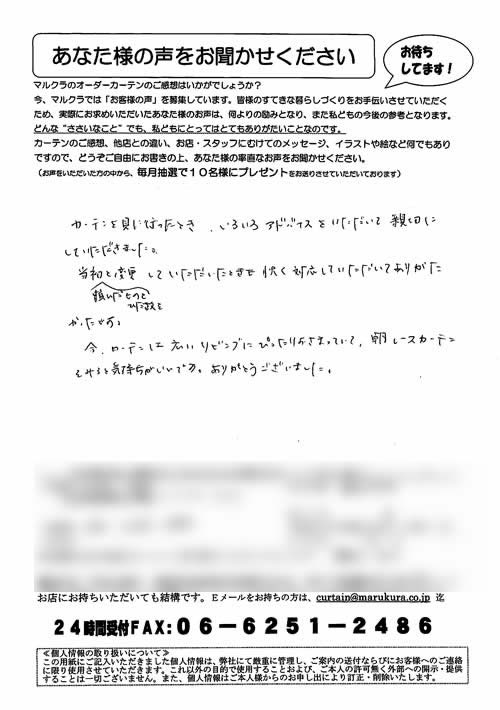 あなた様の声をお聞かせください
お待ち
してます！
マルクラのオーダーカーテンのご感想はいかがでしょうか？
今、マルクラでは「お客様の声」を募集しています。皆様のすてきな暮らしづくりをお手伝いさせていただく
ため、実際にお求めいただいたあなた様のお声は、何よりの励みとなり、また私どもの今後の参考となります。
どんな“ささいなこと”でも、私どもにとってはとてもありがたいことなのです。
カーテンのご感想、他店との違い、お店・スタッフにむけてのメッセージ、イラストや絵など何でもあり
ですので、どうぞご自由にお書きの上、あなた様の率直なお声をお聞かせください。
（お声をいただいた方の中から、毎月抽選で１０名様にプレゼントをお送りさせていただいております）
カーテンを見に行ったとき、いろいろアドバイスをいただいて親切に
していただきました。
当初と変更していただいたときも快く対応していただいてありがた
頼んだものと
かったです。
今、カーテンは広いリビングにぴったりおさまっていて、朝レースカーテン
をみると気持ちがいいです。ありがとうございました。
お店にお持ちいただいても結構です。Ｅメールをお持ちの方は、curtain@marukura.co.jp 迄
２４時間受付FAX:０６－６２５１－２４８６
≪個人情報の取り扱いについて≫
この用紙にご記入いただきました個人情報は、弊社にて厳重に管理し、ご案内の送付ならびにお客様へのご連絡
に限り使用させていただきます。これ以外の目的で使用することおよび、ご本人の許可無く外部への開示・提供
することは一切ございません。また、個人情報はご本人様からのお申し出により訂正・削除いたします。